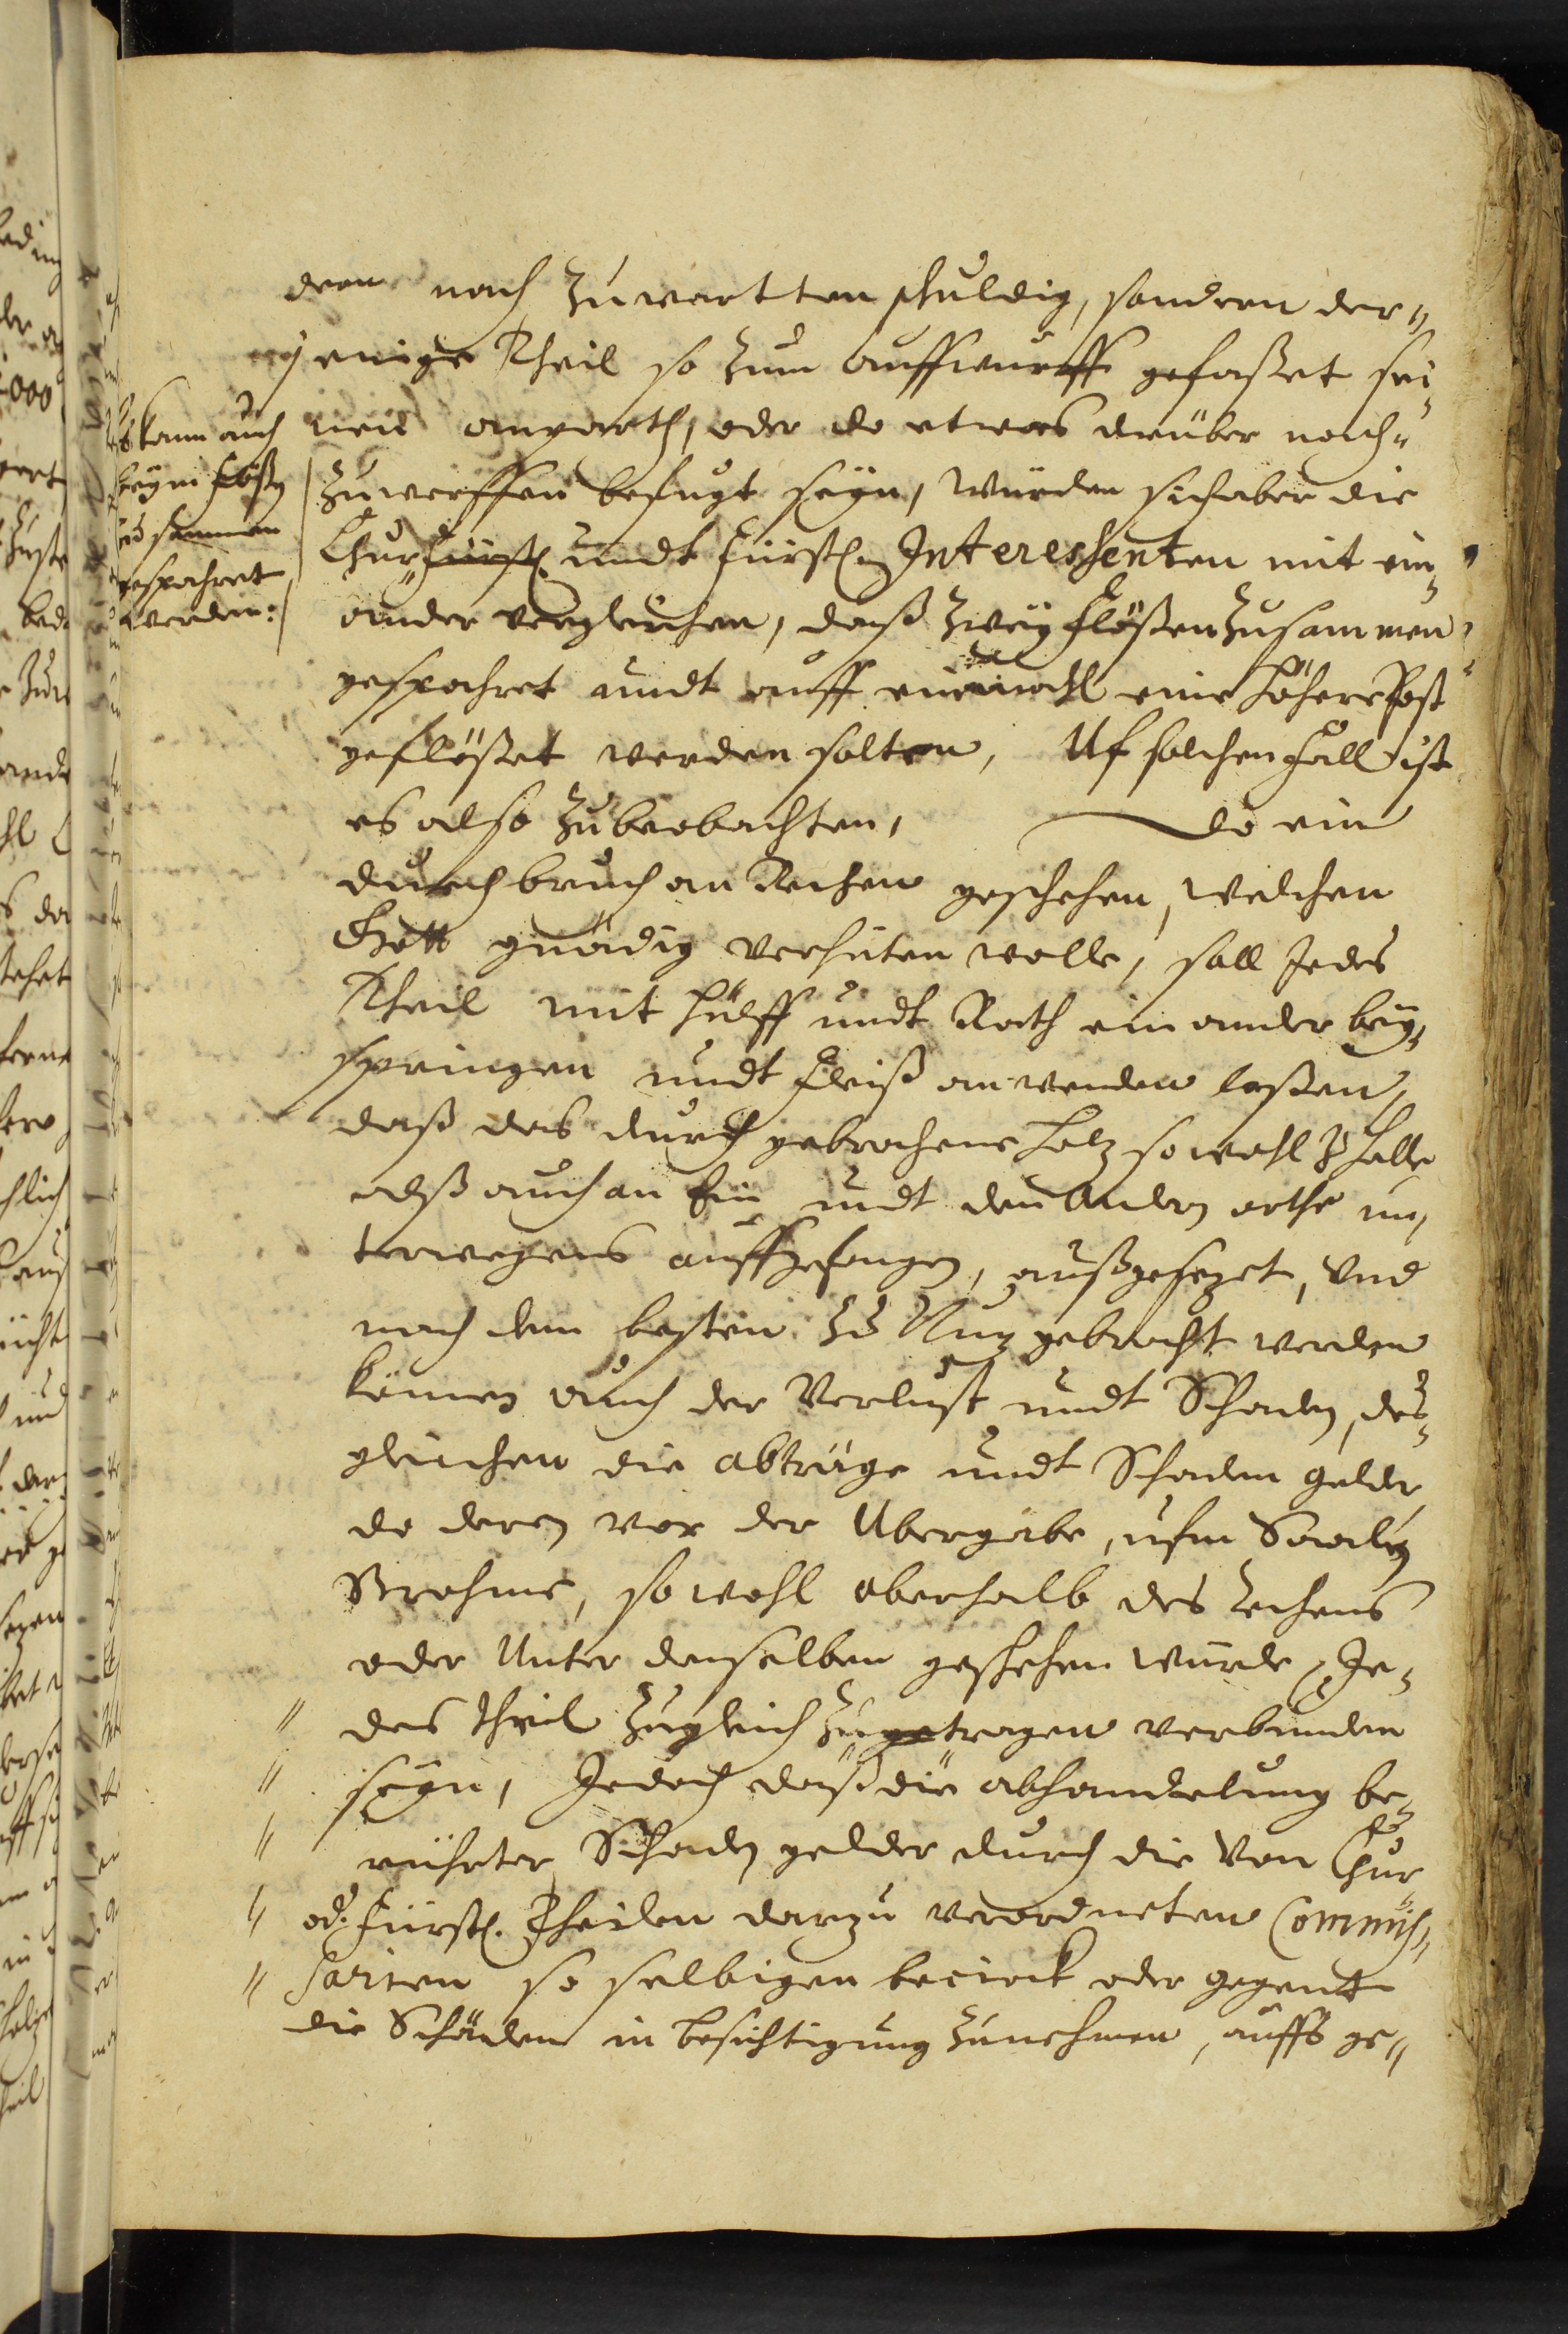 dern nach zuwartten schuldig, sondern der„
jenige Theil so zum auffwurff gefaßet sei„
nes anparth, oder do etwas drüber nach„
zuwerffen befugt seyn, würden sich aber die
Chur„Fürstl. undt Fürstl. Interessenten mit ein„
ander vergleichen, daß zwey Flößen zusammen
gespahret undt auff einmahl eine höhere Post
geflößet werden solten, Uf solchen Fall ist
es also zubeobachten, do ein
durchbruch am Rechen geschehen, welchen
Gott gnädig verhüten wolle, soll Jedes
Theil mit hülff undt Rath ein ander bey„
springen undt Fleiß anwenden laßen,
daß das durch gebrochene Holz so wohl zu Halle
alß auch an Ein undt den Andern orthe un„
terwegens auffgefangen, außgesezet, und
nach dem besten zu Nuz gebracht werden
können auch der Verlust undt Schaden, des„
gleichen die abträge undt Schaden gelder
do deren vor der Ubergabe, ufm Saal
Strohme, so wohl oberhalb des Rechens
oder Unter denselben geschehen würde, Je„
des theil zugleich zu getragen verbunden
seyn, Jedoch daß die abhandelung be„
rührter Schaden gelder durch die von Chur
od. Fürstl. Theilen darzu verordneten Commis„
sarien so selbigen becirck oder gegent
die Schäden in besichtigung zunehmen, auffs ge„
kann auch
beym Flößen
zusammen
gespahret
werden: